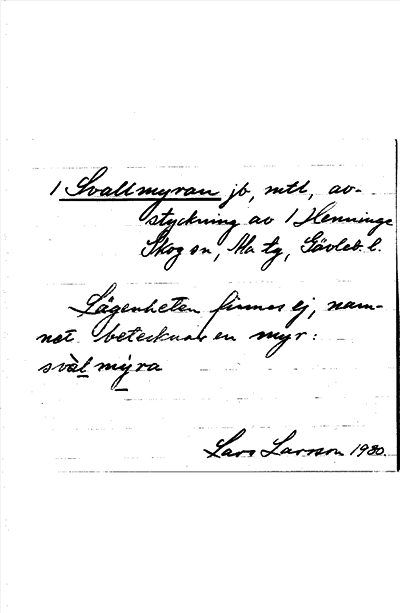 1 Svallmyran jb, mtl, av-
styckning av 1 Henninge
Skog sn, Ala tg, Gävleb. l.
Lägenheten finnes ej, nam-
net betecknar en myr:
svàl mýra
Lars Larsson 1980.